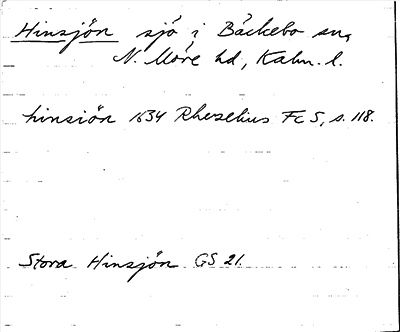 Hinsjön sjö i Bäckebo sn,
N. Möre hd, Kalm. l.
hinsiön 1634 Rhezelius Fc 5, s. 118.
Stora Hinsjön GS 21.